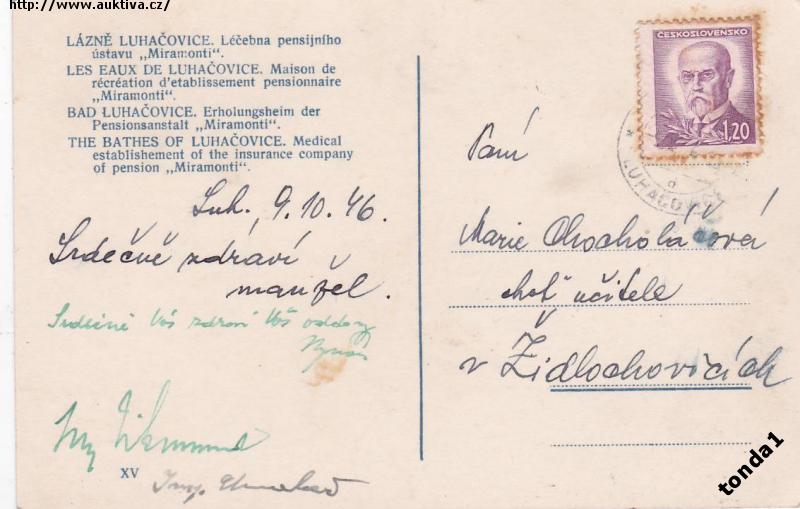 http://www.auktiva.cz/
LÁZNĚ LUHAČOVICE. Léčebna pensijního
ústavu „Miramonti”.
LES EAUX DE LUHAČOVICE. Maison de
récréation d'etablissement pensionnaire
„Miramonti”.
BAD LUHAČOVICE. Erholungsheim der
Pensionsanstalt „Miramonti”.
THE BATHES OF LUHAČOVICE. Medical
establishement of the insurance company
of pension „Miramonti”.
Luh. 9.10.46.
Srdečně zdraví
manžel.
Srdečně Vás zdraví Váš oddaný
Ing.
XV
Ing.
ČESKOSLOVENSKO
1,20
LUHAČOVICE
Paní
Marie Chocholáčová
choť učitele
v Židlochovicích
tonda1